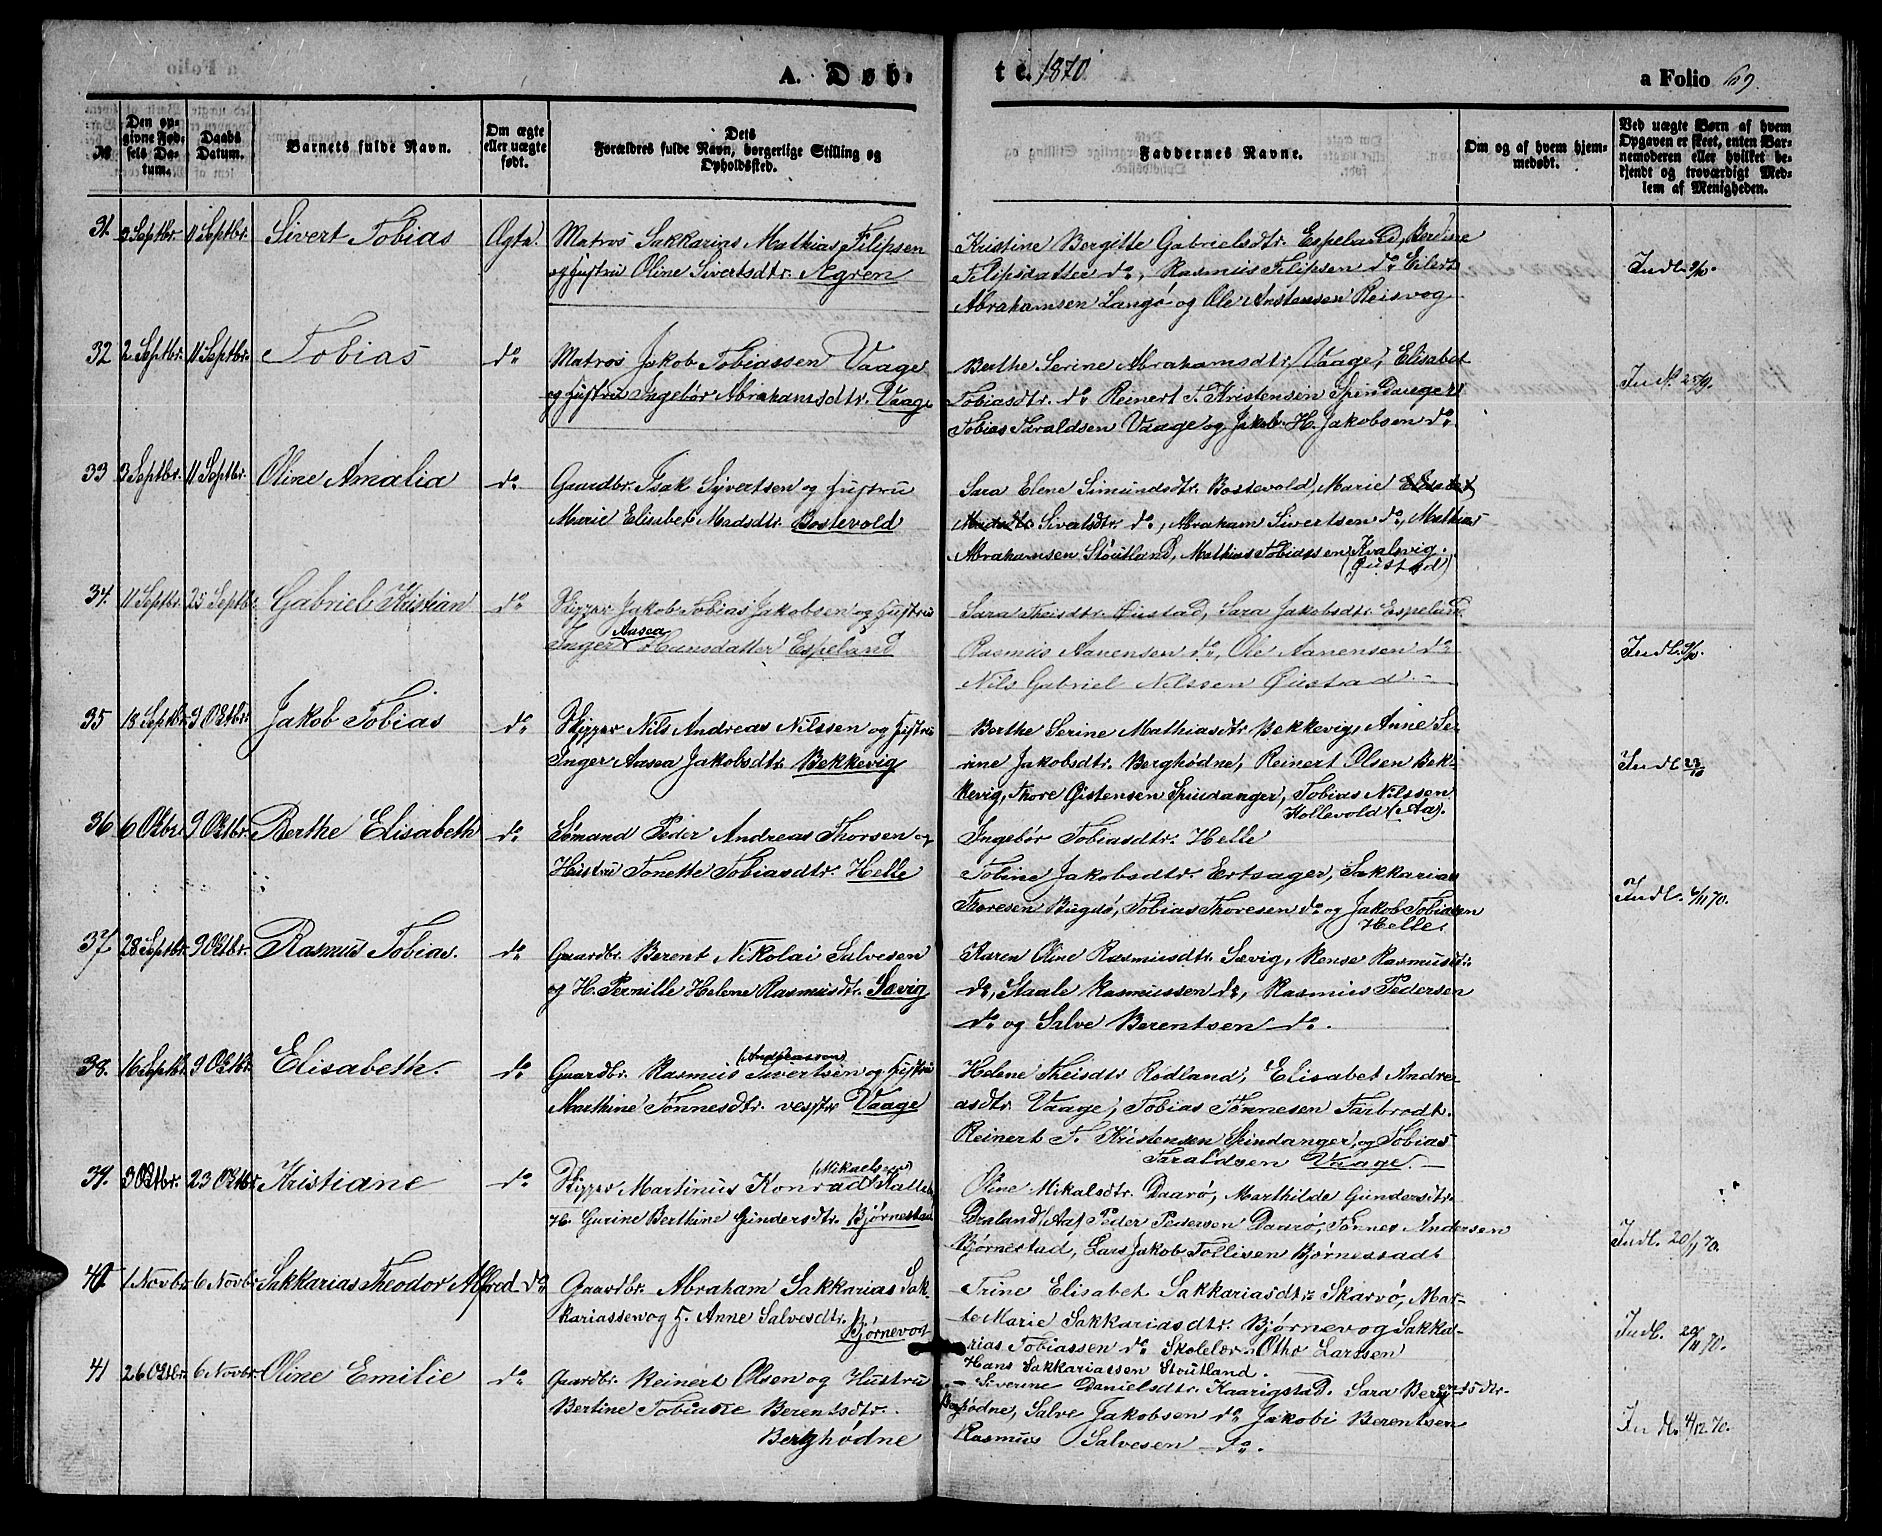 A. Døb-
te. 1870
a Folio 69.
№
Den opgivne Fødsels Datum.
Daabs Datum.
Barnets fulde Navn.
Om ægte eller uægte født.
Dets Forældres fulde Navn, borgerlige Stilling og Opholdssted.
Faddernes Navne.
Om og af hvem hjemmedøbt.
Ved uægte Børn af hvem Opgaven er skeet, enten Barnemoderen eller hvilket bekjendt og troværdigt Medlem af Menigheden.
31. 3 Septbr. 11 Septbr. Sivert Tobias Ægte. Matros Sakkarias Mathias Filipsen
og Hustru Oline Sivertsdtr. Ægren
Kristine Bergitte Gabrielsdtr. Espeland, Berdine
Filipsdatter do, Rasmus Filipsen do Eilert
Abrahamsen Langø og Ole Anstensen Reisvog
Indl. 9/10.
32 2 Septbr. 11 Septbr. Tobias do Matros Jakob Tobiassen Vaage
og Hustru Ingebor Abrahamsdtr. Vaage
Berthe Serine Abrahamsdtr. Vaage, Elisabet
Tobiasdtr. do Reinert T. Kristensen Spindanger
Tobias Taraldsen Vaage og Jakob H. Jakobsen do
Indl. 25/9.
33 3 Septbr. 11 Septbr. Oline Amalia do Gaardbr. Isak Syvertsen og Hustru
Marie Elisabet Madsdtr. Bostevold
Sara Elene Simundsdtr. Bostevold, Marie Elisabet
Madsdtr. Sivalsdtr. do, Abraham Sivertsen do, Mathias
Abrahamsen Stoutland, Mathias Tobiassen Kvalsvig.
(Øustad)
34. 11 Septbr. 25 Septbr. Gabriel Kristian do Skipper Jakob Tobias Jakobsen og Hustru
Aasea
Inger Hansdatter Espeland
Sara Theisdtr. Øustad, Sara Jakobsdtr. Espeland
Rasmus Aanensen do, Ole Aanensen do
Nils Gabriel Nilssen Øustad.
Indl. 9/10.
35 18 Septbr. 9 Oktbr. Jakob Tobias do Skipper Nils Andreas Nilssen og Hustru
Inger Aasea Jakobsdtr. Bekkevig
Berthe Serine Mathiasdtr. Bekkevig, Anne Se-
rine Jakobsdtr. Berghødne, Reinert Olsen Bek-
kevig, Thore Gistensen Spindanger, Tobias Nilssen
Hollevold (Aa).
Indl. 23/10
36 6 Oktbr. 9 Oktbr. Berthe Elisabeth do Sømand Peder Andreas Thorsen og
Hustru Tonette Tobiasdtr. Helle
Ingebør Tobiasdtr. Helle
Tobine Jakobsdtr. Ertsager, Sakkarias
Thoresen Bugdø, Tobias Thoresen do og Jakob Tobiasen
Helle.
Indl. 6/11 70.
37 28 Septbr. 9 Oktbr. Rasmus Tobias. do Gaardbr. Berent Nikolai Salvesen
og H. Pernille Helene Rasmusdtr. Sævig
Karen Oline Rasmusdtr. Sævig, Rense Rasmusdtr.
do, Staale Rasmussen do, Rasmus Pedersen
do og Salve Berentsen do.
38. 16 Septbr. 9 Oktbr. Elisabeth. do Gaardbr. Rasmus (Andreassen) Sivertsen og Hustru
Marthine Tønnesdtr. vestre Vaage
Helene Theisdtr. Rødland, Elisabet Andre-
asdtr. Vaage, Tobias Tønnesen Farbrodt.
Reinert T. Kristensen Spindanger, og Tobias
Taraldsen Vaage.
39. 3 Oktbr. 23 Oktbr. Kristiane do Skipper Martinus Konrad (Mikaelsen)
H. Gurine Berthine Gundersdtr. Bjørnestad
Oline Mikalsdtr. Daarø, Marthilde Gundersdtr.
Draland (Aa) Peder Pedersen Daarø, Tønnes Andersen
Bjørnestad, Lars Jakob Tollisen Bjørnestadt
Indl. 20/11 70.
40 1 Novbr. 6 Novbr. Sakkarias Theodor Alfred do Gaardbr. Abraham Sakkarias Sak-
kariassen og H. Anne Salvesdtr.
Bjørnevog
Trine Elisabet Sakkariasdtr. Skarvø, Mar-
te Marie Sakkariasdtr. Bjørnevog Sakka-
rias Tobiassen do Skolelær. Otho Larssen
Hans Sakkariassen Stoutland.
Indl. 20/11 70.
41 26 Oktbr. 6 Novbr. Oline Emilie do Gaardbr. Reinert Olsen og Hustru
Bertine Tobiane Berentsdtr.
Berghødne
Siverine Danielsdtr. Kaarigstad. Sara Berentsdtr.
Berghødne, Salve Jakobsen do Jakobi Berentsen
Rasmus Salvesen do.
Indl. 4/12 70.